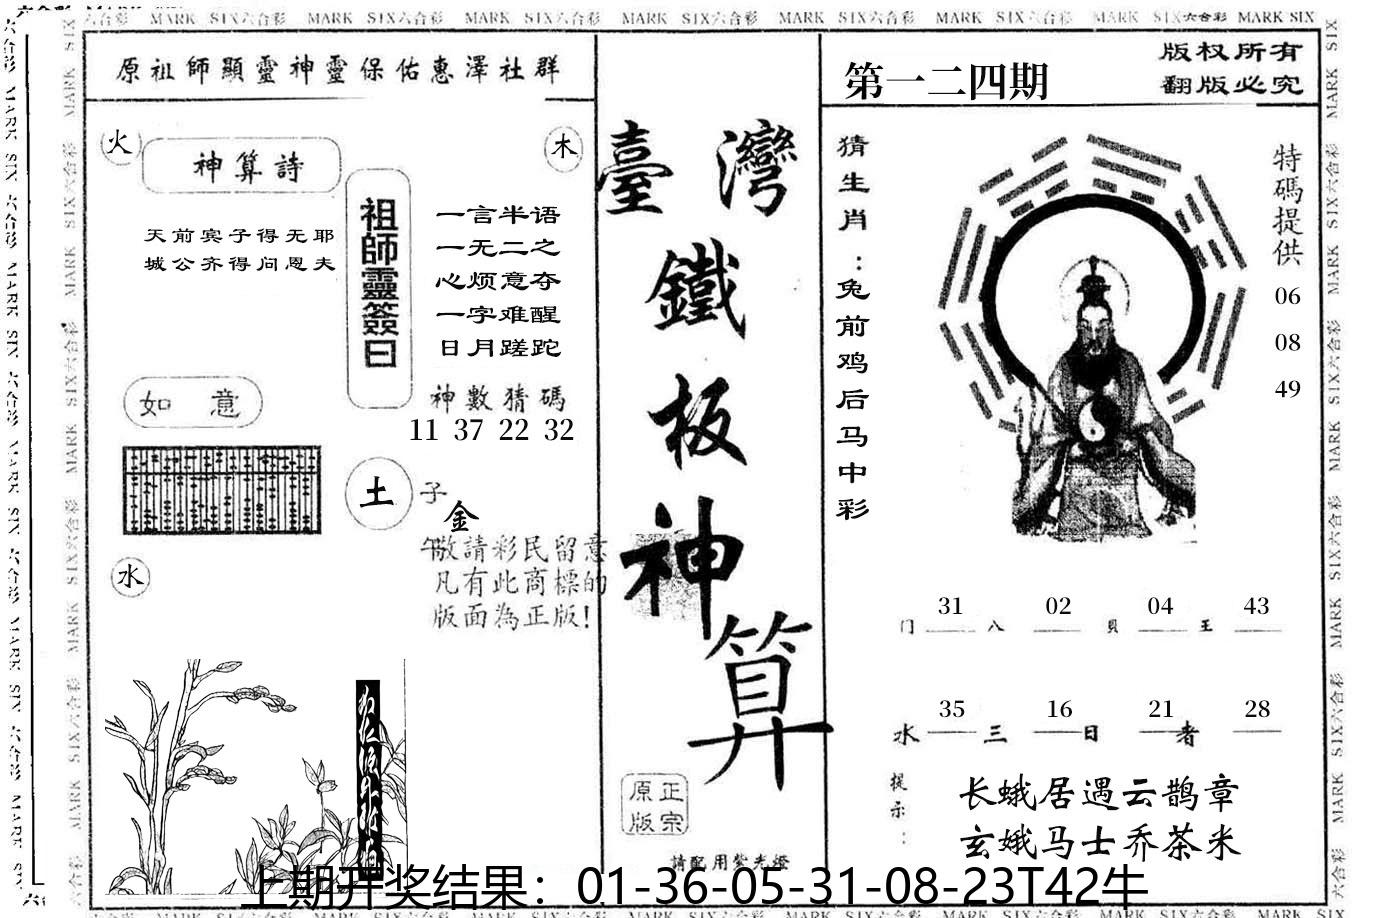 MARK SIX六合彩 MARK SIX六合彩 MARK SIX六合彩 MARK SIX六合彩 MARK SIX六合彩 MARK SIX六合彩 MARK SIX六合彩 MARK SIX
原祖師顯靈神靈保佑惠澤社群
火
神算詩
木
天前宾子得无耶
城公齐得问恩夫
祖師靈簽曰
一言半语
一无二之
心烦意夺
一字难醒
日月蹉跎
如意
神數猜碼
11 37 22 32
土
子
金
午
敬請彩民留意
凡有此商標的
版面為正版!
水
臺灣
鐵
板
神
算
正宗
原版
請配用紫光燈
第一二四期
版权所有
翻版必究
猜生肖:兔前鸡后马中彩
特碼提供
06
08
49
31 02 04 43
门 八 貝 王
35 16 21 28
水 三 日 者
提示:
长蛾居遇云鹊章
玄娥马士乔茶米
上期开奖结果：01-36-05-31-08-23T42牛